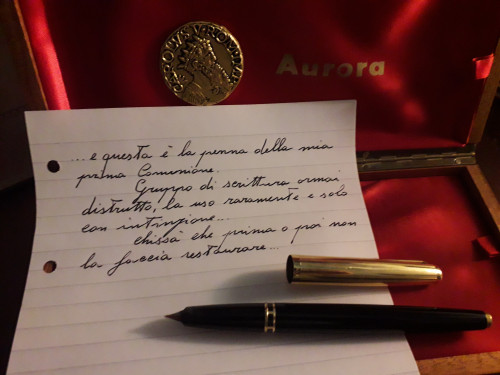 Aurora
... e questa è la penna della mia
prima Comunione.
Gruppo di scrittura ormai
distrutto, la uso raramente e solo
con intinzione...
chissà che prima o poi non
la faccia restaurare...